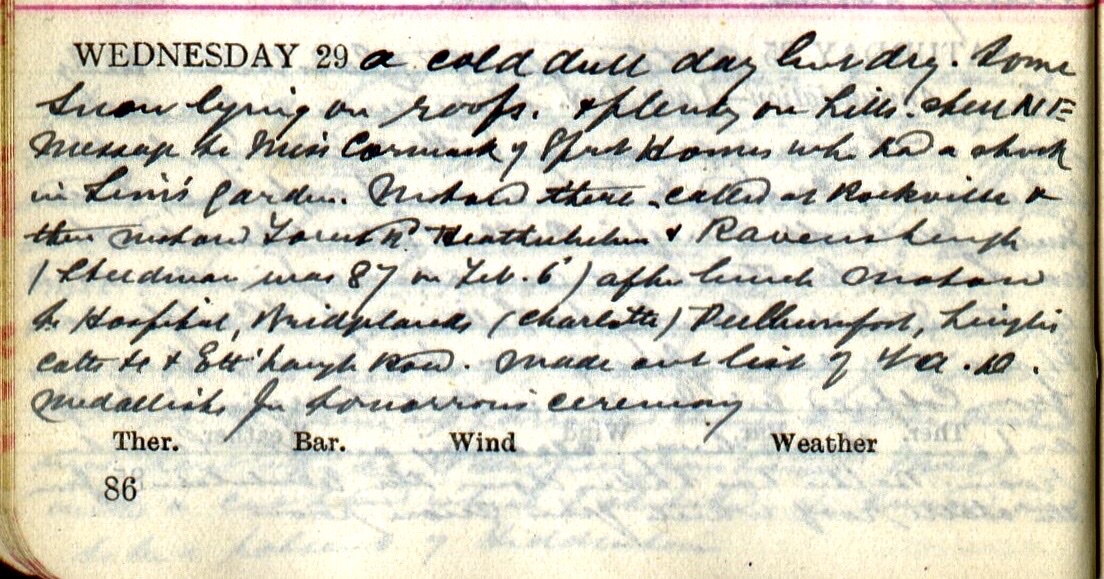 WEDNESDAY 29 a cold dull day but dry. Some
snow lying on roofs. & plenty on hills. chill NE
Message to Miss Cormack of Homes who had a shock
in garden. Motored there. called at Rockville &
then motored Forest Rd. Heatherlie & Ravensheugh
(Steedman was 87 on Feb. 6) after lunch motored
to Hospital, Bridgelands (Charlotte) Philiphaugh,
& Ett'haugh Road. Made out list of
Medallists for tomorrow's ceremony
Ther. Bar. Wind Weather
86